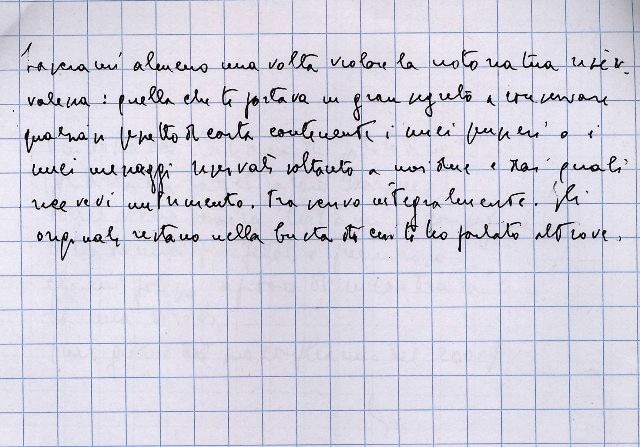 Lasciami almeno una volta violare la notoria tua riser-
vatezza: quella che ti portava in gran segreto a conservare
qualsiasi pezzetto di carta contenente i miei pensieri o i
miei messaggi riservati soltanto a noi due e dai quali
ricevevi nutrimento. Trascrivo integralmente. Gli
originali restano nella busta di cui ti ho parlato altrove.